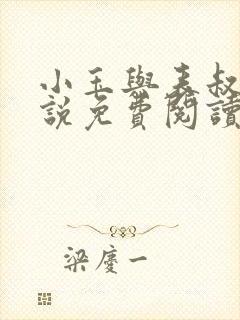 小玉與表叔
說免費閱讀
梁慶一